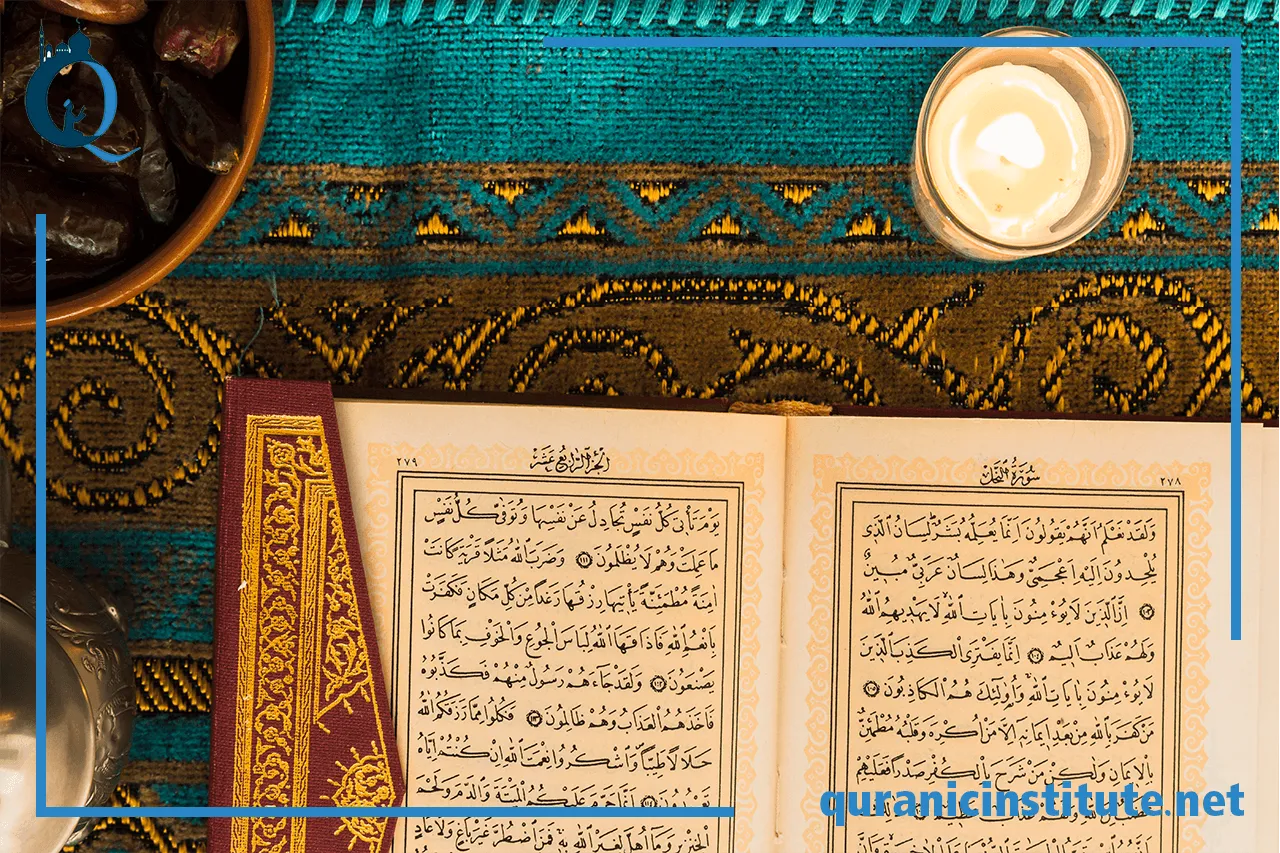 سُورَةُ النَّحْلِ
٢٧٨
وَلَقَدْ نَعْلَمُ اَنَّهُمْ يَقُولُونَ اِنَّمَا يُعَلِّمُهُ بَشَرٌ لِسَانُ الَّذِي
يُلْحِدُونَ اِلَيْهِ اَعْجَمِيٌّ وَهٰذَا لِسَانٌ عَرَبِيٌّ مُبِينٌ
﴿١٠٣﴾ اِنَّ الَّذِينَ لَا يُؤْمِنُونَ بِاٰيَاتِ اللّٰهِ لَا يَهْدِيهِمُ اللّٰهُ
وَلَهُمْ عَذَابٌ اَلِيمٌ ﴿١٠٤﴾ اِنَّمَا يَفْتَرِي الْكَذِبَ الَّذِينَ
لَا يُؤْمِنُونَ بِاٰيَاتِ اللّٰهِ وَاُولٰئِكَ هُمُ الْكَاذِبُونَ ﴿١٠٥﴾
مَنْ كَفَرَ بِاللّٰهِ مِنْ بَعْدِ اِيمَانِهِ اِلَّا مَنْ اُكْرِهَ وَقَلْبُهُ مُطْمَئِنٌّ
بِالْاِيمَانِ وَلٰكِنْ مَنْ شَرَحَ بِالْكُفْرِ صَدْرًا فَعَلَيْهِمْ
الْجُزْءُ الرَّابِعُ عَشَرَ
٢٧٩
يَوْمَ تَأْتِي كُلُّ نَفْسٍ تُجَادِلُ عَنْ نَفْسِهَا وَتُوَفّٰى كُلُّ نَفْسٍ
مَا عَمِلَتْ وَهُمْ لَا يُظْلَمُونَ ﴿١١١﴾ وَضَرَبَ اللّٰهُ مَثَلًا قَرْيَةً كَانَتْ
اٰمِنَةً مُطْمَئِنَّةً يَأْتِيهَا رِزْقُهَا رَغَدًا مِنْ كُلِّ مَكَانٍ فَكَفَرَتْ
بِاَنْعُمِ اللّٰهِ فَاَذَاقَهَا اللّٰهُ لِبَاسَ الْجُوعِ وَالْخَوْفِ بِمَا كَانُوا
يَصْنَعُونَ ﴿١١٢﴾ وَلَقَدْ جَاءَهُمْ رَسُولٌ مِنْهُمْ فَكَذَّبُوهُ
فَاَخَذَهُمُ الْعَذَابُ وَهُمْ ظَالِمُونَ ﴿١١٣﴾ فَكُلُوا مِمَّا رَزَقَكُمُ اللّٰهُ
حَلَالًا طَيِّبًا وَاشْكُرُوا نِعْمَتَ اللّٰهِ اِنْ كُنْتُمْ اِيَّاهُ
تَعْبُدُونَ ﴿١١٤﴾ اِنَّمَا حَرَّمَ عَلَيْكُمُ الْمَيْتَةَ وَالدَّمَ وَلَحْمَ
الْخِنْزِيرِ وَمَا اُهِلَّ لِغَيْرِ اللّٰهِ بِهِ فَمَنِ اضْطُرَّ غَيْرَ بَاغٍ وَلَا عَادٍ
quranicinstitute.net